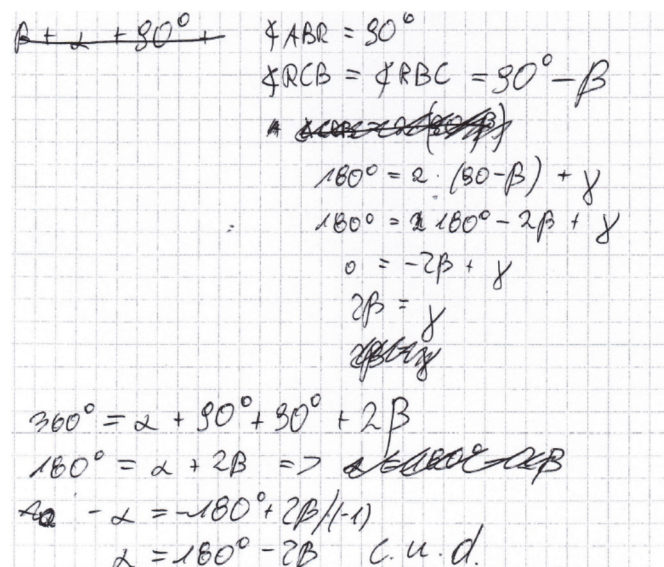 β + α + 90° +
∢ABR = 90°
∢RCB = ∢RBC = 90° - β
180° = 2 · (90 - β) + γ
180° = 180° - 2β + γ
0 = -2β + γ
2β = γ
360° = α + 90° + 90° + 2β
180° = α + 2β =>
-α = -180° + 2β /(-1)
α = 180° - 2β c.n.d.